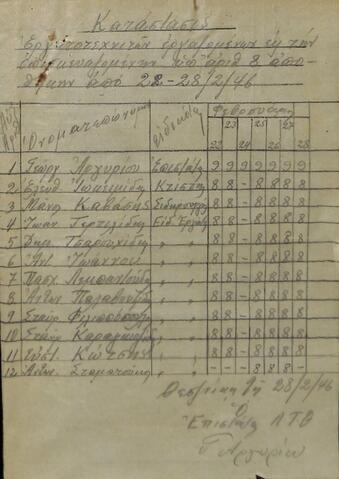 Κατάστασις
Εργατοτεχνιτών εργαζομένων εις την
υπ' αριθ 8 απο-
θήκην από 22-28/2/46
Αύξ Αρ. Ονοματεπώνυμον ειδικότης Φεβρουάριος
22 23 24 25 26 27 28
1 Γεώργ Αργυρίου Επιστάτης 9 9 9 9 9 9 9
2 Ελευθ Ιωακειμίδης Κτίστης 8 8 - 8 8 8 8
3 Μαν. Καβάδης Σιδηρουργός 8 8 - 8 8 8 8
4 Ιωαν Τερτιλίδης Ειδ. Εργάτης 8 8 - 8 8 8 8
5 Δημ. Τσαρουχίδης " " 8 8 - 8 8 8 8
6 " " 8 8 - 8 8 8 8
7 Πασχ. " " 8 8 - 8 8 8 8
8 Αντων. " " 8 8 - 8 8 8 8
9 Σταύρ " " 8 8 - 8 8 8 8
10 Σταύρ " " 8 8 - 8 8 8 8
11 Ευστ. Κώτσης " " 8 8 - 8 8 8 8
12 Αντων. Σταματάκης " " - - - 8 8 8 8
Θεσ/νίκη τη 28/2/46
Ο
Επιστάτης ΛΤΘ
Γ Αργυρίου